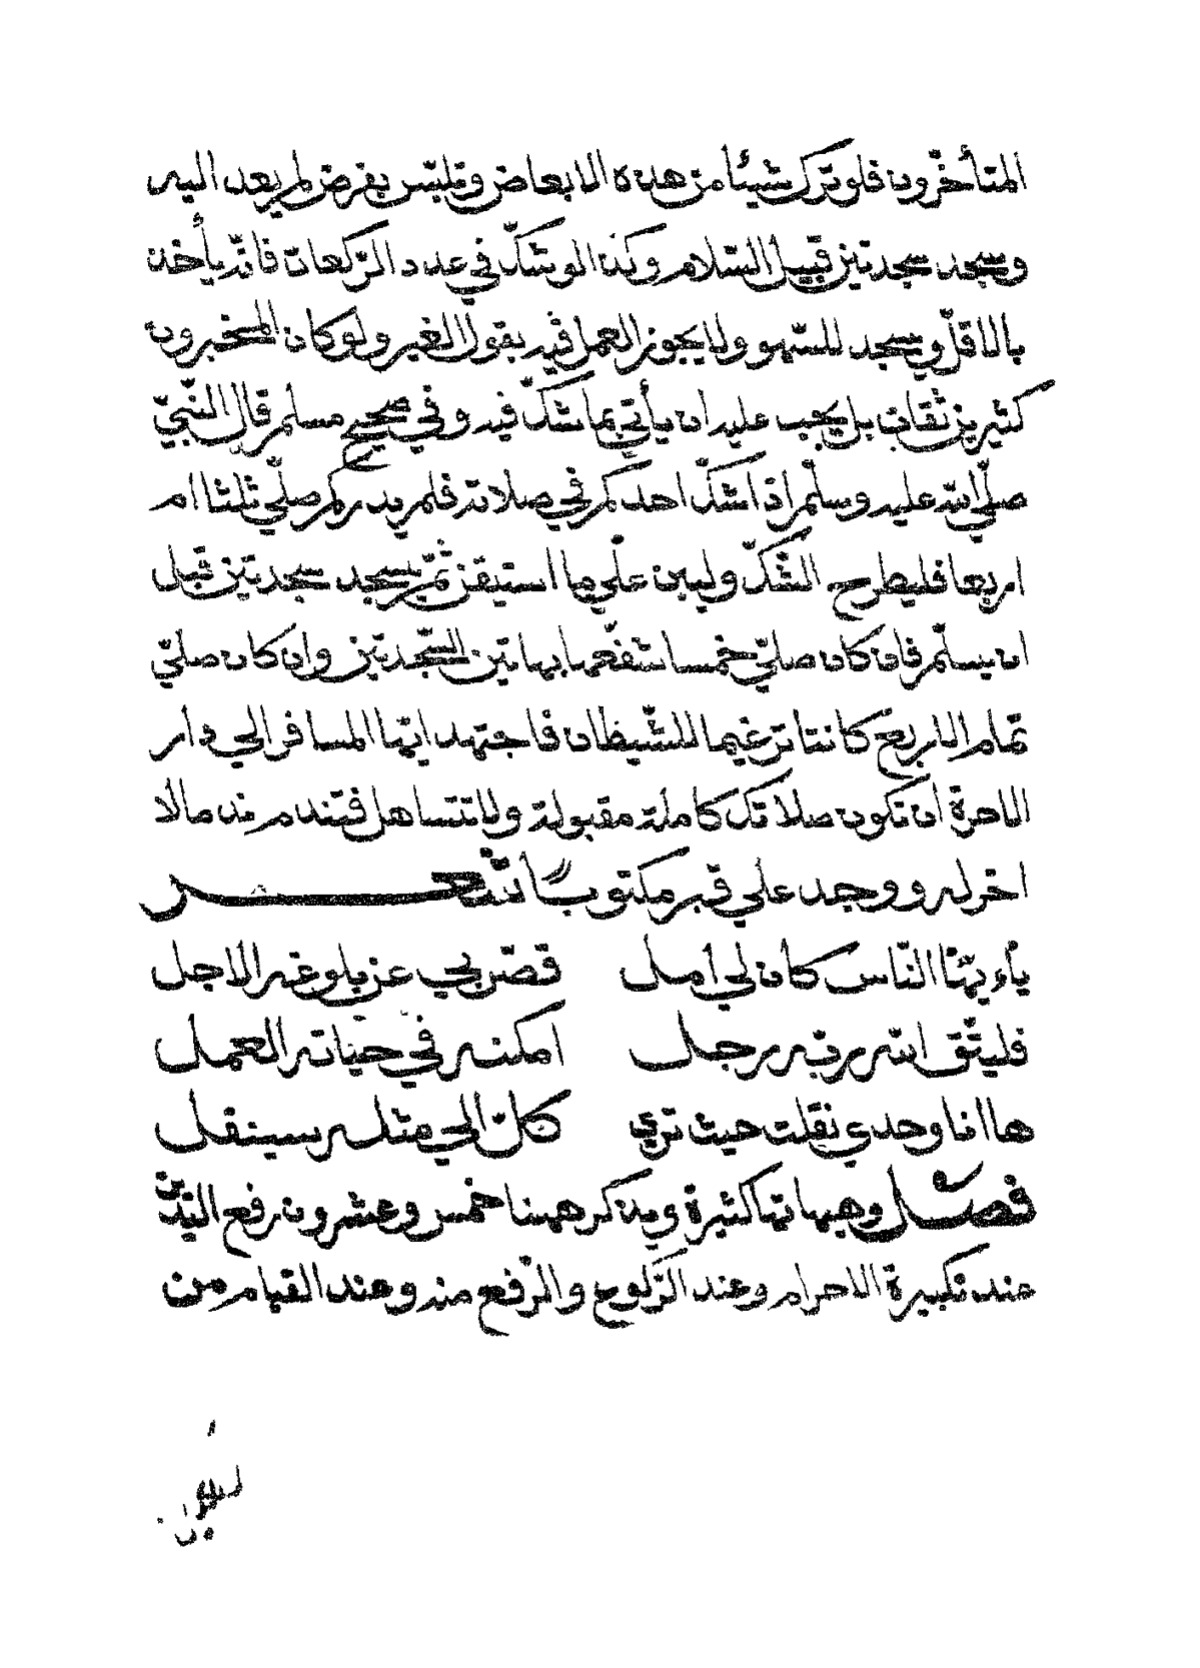 المتأخّرون فلو ترك شيئا من هذه الابعاض وتلبّس بفرض لم يعد اليه
وسجد سجدتين قبيل السّلام وكذا لو شكّ في عدد الرّكعات فانّه يأخذ
بالاقلّ ويسجد للسّهو ولا يجوز العمل فيه بقول الغير ولو كان المخبرون
كثيرين ثقات بل يجب عليه ان يأتي بما شكّ فيه وفي صحيح مسلم قال النّبيّ
صلّي الله عليه وسلّم اذا شكّ احدكم في صلاته فلم يدر كم صلّي ثلثا ام
اربعا فليطرح الشّكّ وليبن علي ما استيقن ثمّ يسجد سجدتين قبل
ان يسلّم فان كان صلّي خمسا شفعها بهاتين السّجدتين وان كان صلّي
تمام الاربع كانتا ترغيما للشّيطان فاجتهد ايّها المسافر الي دار
الاخرة ان تكون صلاتك كاملة مقبولة ولا تتساهل فتندم ندما لا
اخر له ووجد علي قبر مكتوبا شعر
يأيّها النّاس كان لي أمل قصّر بي عن بلوغه الاجل
فليتّق الله ربّه رجل امكنه في حياته العمل
ها انا وحدي نقلت حيث تري كلّ الي مثله سينقل
فصل وهيأتها كثيرة ويذكر ههنا خمس وعشرون رفع اليدين
عند تكبيرة الاحرام وعند الرّكوع والرّفع منه وعند القيام من